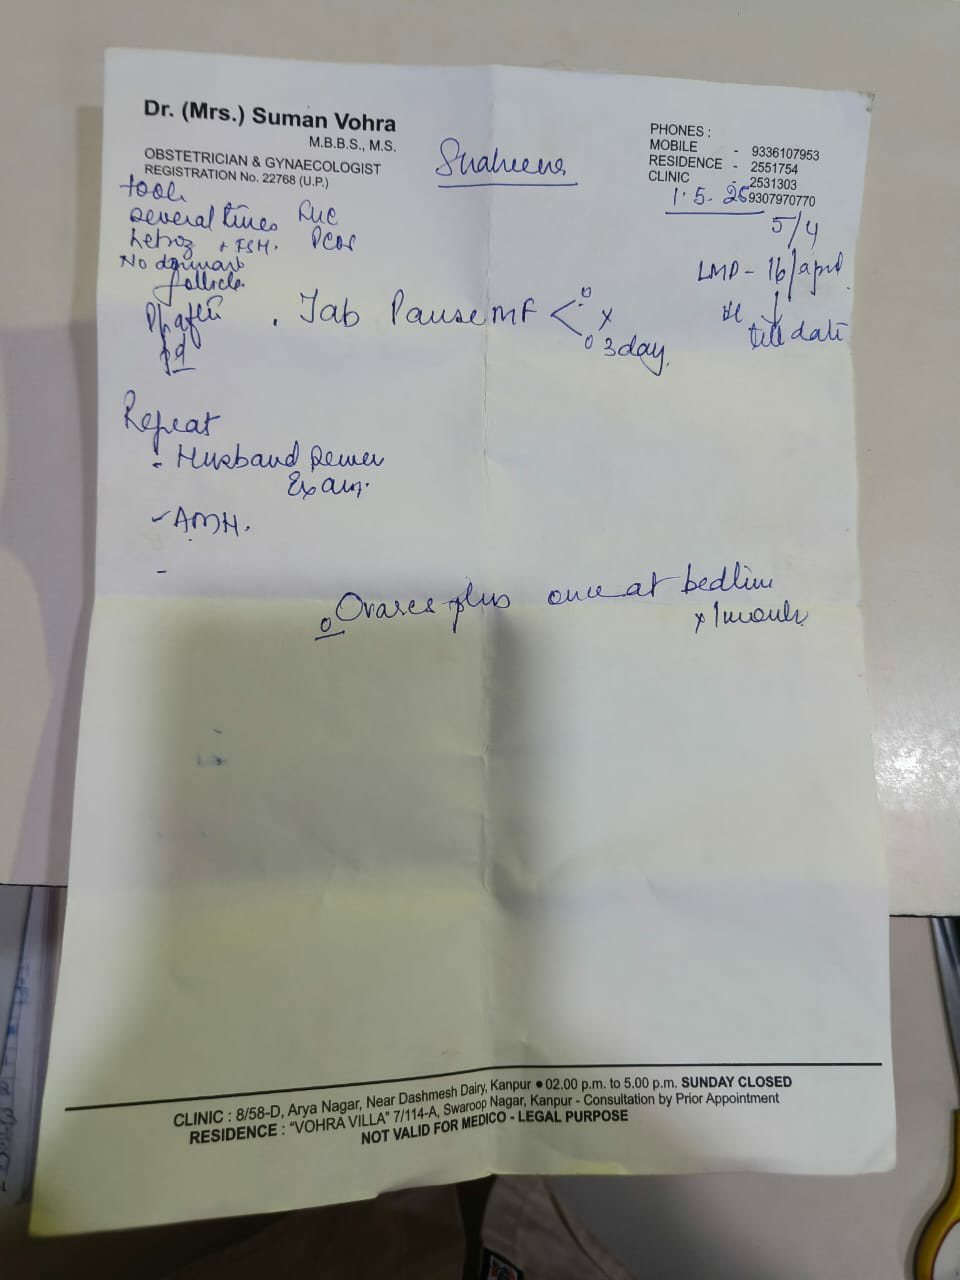 Dr. (Mrs.) Suman Vohra
M.B.B.S., M.S.
OBSTETRICIAN & GYNAECOLOGIST
REGISTRATION No. 22768 (U.P.)
PHONES :
MOBILE - 9336107953
RESIDENCE - 2551754
CLINIC - 2531303
9307970770
1.5.
5/4
took
several times
Letroz + FSH.
No
follicle
PCOS
LMP - 16/april
till date
Tab Pause MF < 0 0 x
3day.
Repeat
Husband Semen
Exam.
AMH.
Ovares plus once at bedtime
x 1 month
CLINIC : 8/58-D, Arya Nagar, Near Dashmesh Dairy, Kanpur ● 02.00 p.m. to 5.00 p.m. SUNDAY CLOSED
RESIDENCE : "VOHRA VILLA" 7/114-A, Swaroop Nagar, Kanpur - Consultation by Prior Appointment
NOT VALID FOR MEDICO - LEGAL PURPOSE